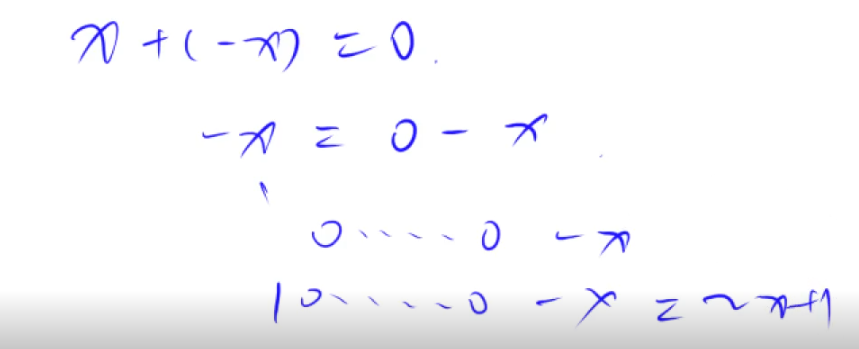 x + (-x) = 0.
-x = 0 - x
0 ..... 0 - x
10 ..... 0 - x = ~x+1